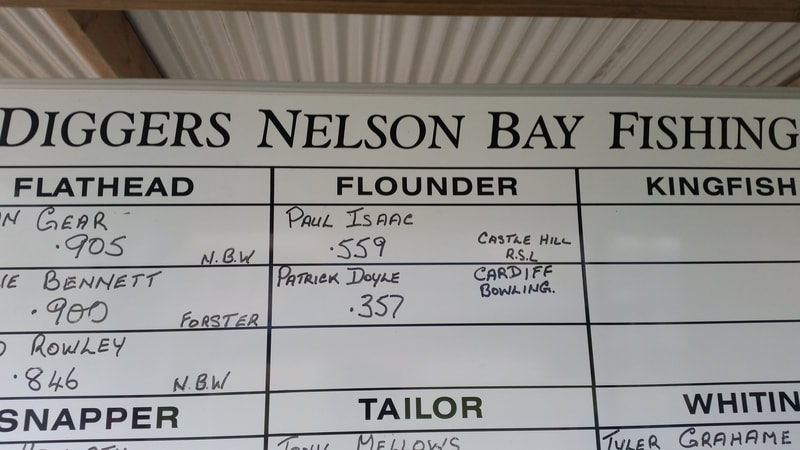 DIGGERS NELSON BAY FISHING
FLATHEAD
GEAR
.905
N.B.W
BENNETT
.900
FORSTER
ROWLEY
.846
N.B.W
FLOUNDER
PAUL ISAAC
.559
CASTLE HILL
R.S.L
PATRICK DOYLE
.357
CARDIFF
BOWLING.
KINGFISH
SNAPPER
TAILOR
TONY MELLOWS
WHITIN
TYLER GRAHAME